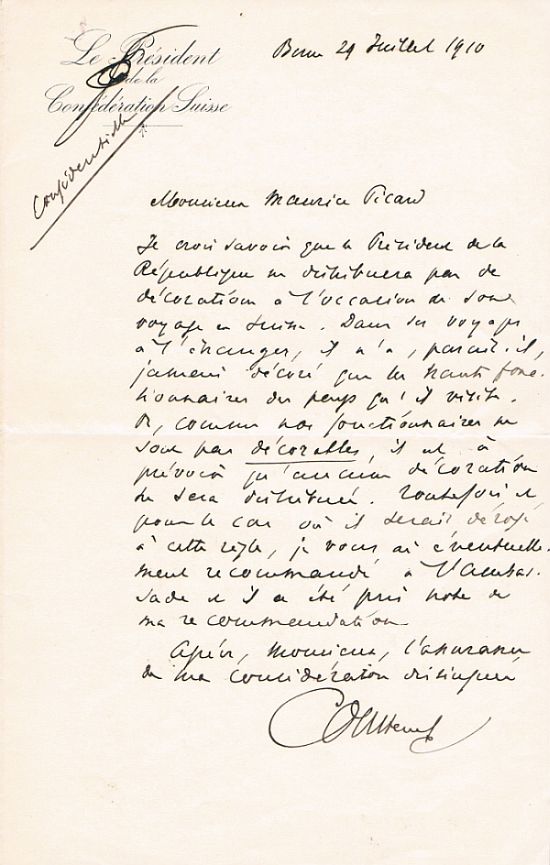 Le Président
de la
Confédération Suisse
Confidentielle
Berne 29 Juillet 1910
Monsieur Maurice Picard
Je crois savoir que le Président de la
République ne distribuera pas de
décorations à l'occasion de son
voyage en Suisse. Dans ses voyages
à l'étranger, il n'a, paraît-il,
jamais décoré que les hauts fonc-
tionnaires du pays qu'il visite.
Or, comme nos fonctionnaires ne
sont pas décorables, il est à
prévoir qu'aucune décoration
ne sera distribuée. Toutefois et
pour le cas où il serait dérogé
à cette règle, je vous ai éventuelle-
ment recommandé à l'Ambas-
sade et il a été pris note de
ma recommandation
Agréez, Monsieur, l'assurance
de ma considération distinguée